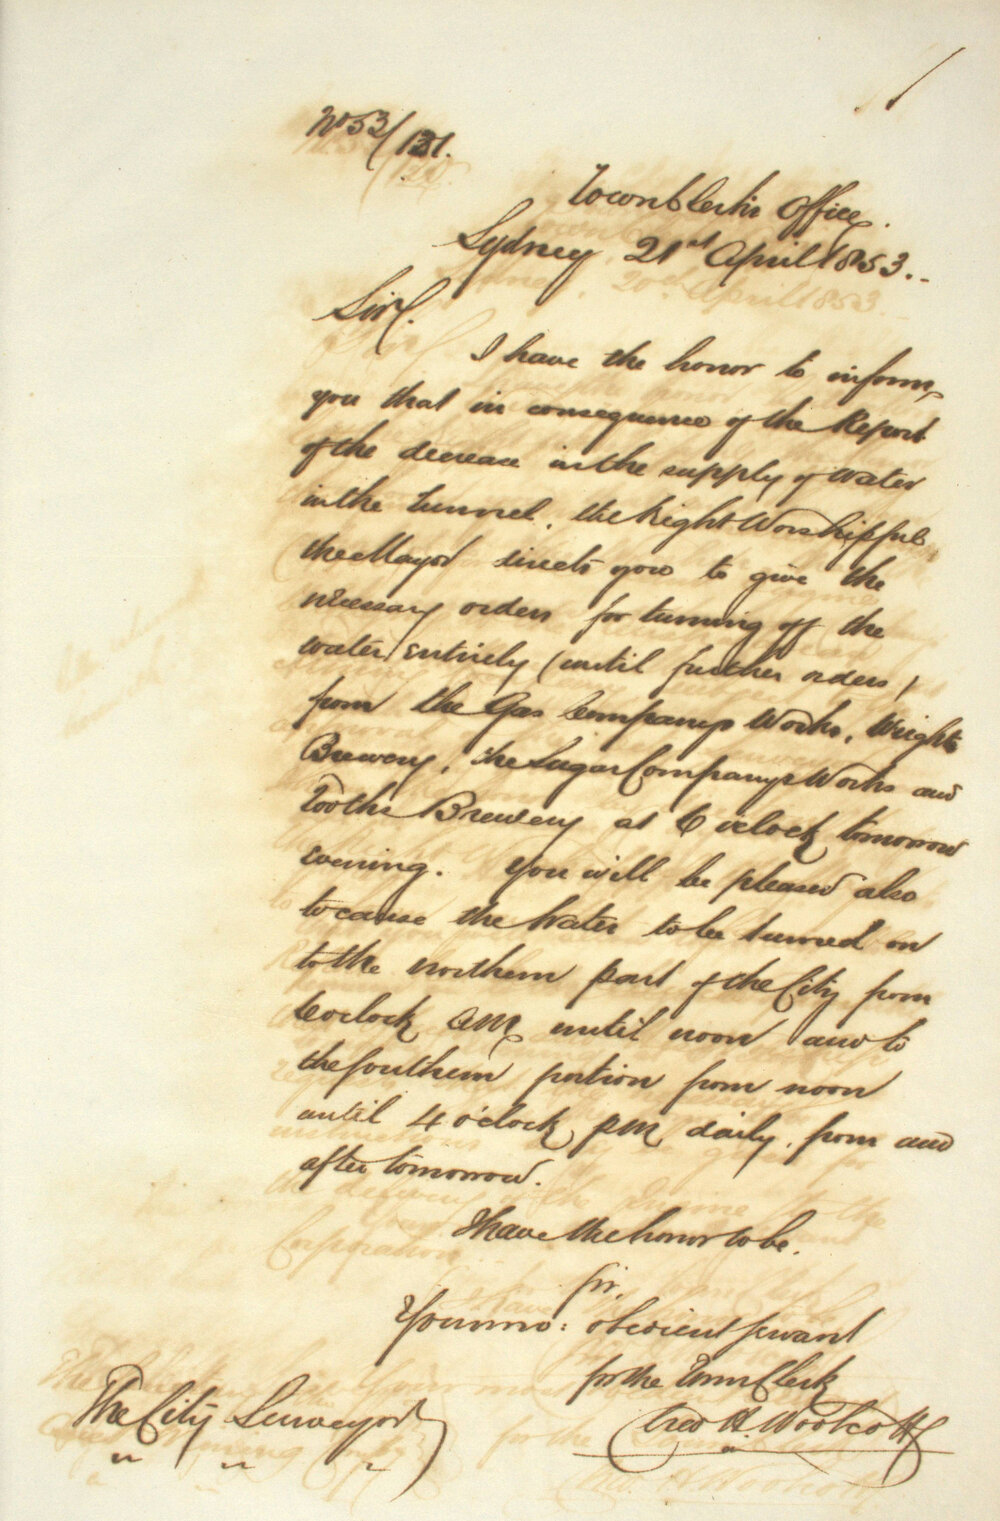 No 53/131.
Town Clerk's Office.
Sydney 21st April 1853.
Sir.
I have the honor to inform
you that in consequence of the Report
of the decrease in the supply of water
in the tunnel, the Right Worshipful
the Mayor directs you to give the
necessary orders for turning off the
water entirely (until further orders)
from the Gas Company's Works, Wright's
Brewery, the Sugar Company's Works and
Tooths Brewery at 6 o'clock tomorrow
evening. You will be pleased also
to cause the Water to be turned on
to the northern part of the City from
6 o'clock AM until noon and to
the southern portion from noon
until 4 o'clock PM daily, from and
after tomorrow.
I have the honor to be.
Sir.
Your mo: obedient servant
for the Town Clerk
H. Woolcott
The City Surveyor